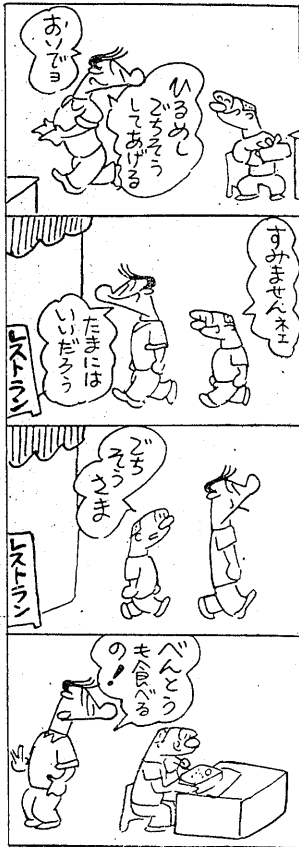 ひるめし
ごちそう
してあげる
おいでヨ
すみませんネェ
たまには
いいだろう
レストラン
ごち
そう
さま
レストラン
べんとう
も食べる
の!